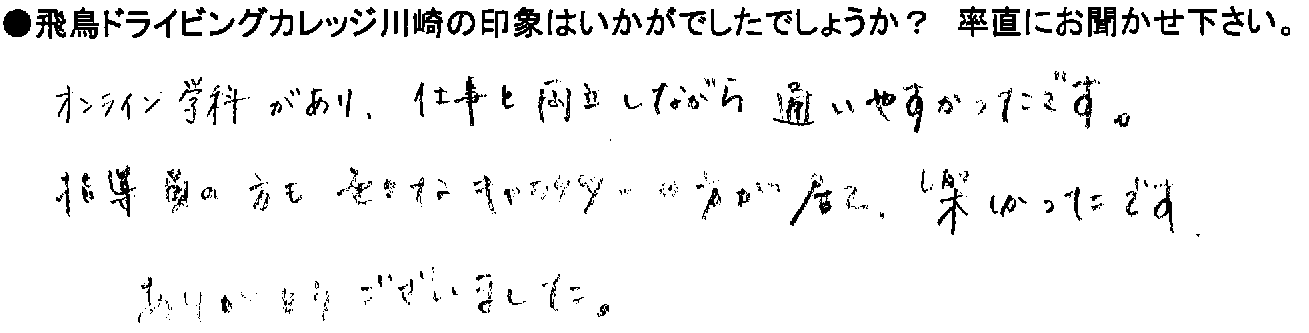 ●飛鳥ドライビングカレッジ川崎の印象はいかがでしたでしょうか？ 率直にお聞かせ下さい。
オンライン学科があり、仕事と両立しながら通いやすかったです。
指導員の方も キャラクターの方が居て、楽しかったです.
ありがとうございました。